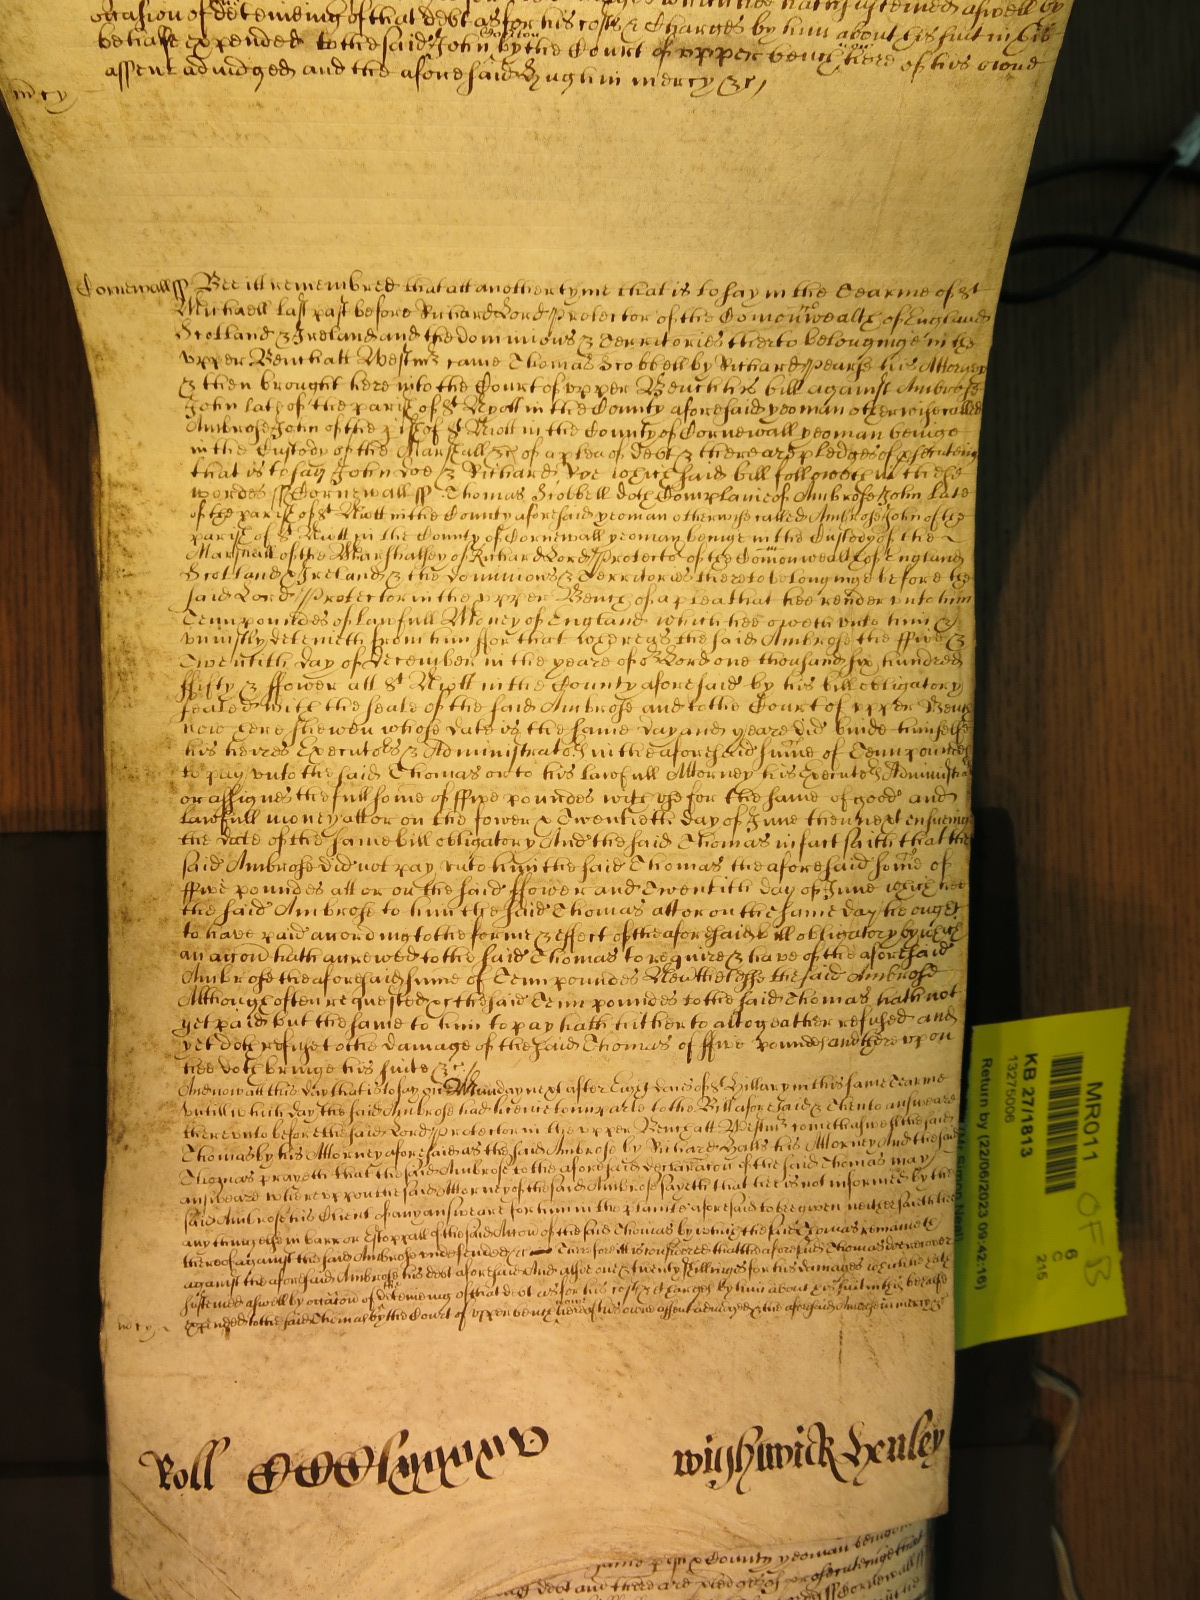 occasion of deteineing of that debt as for his costs & Charges by him about his suit in this
behalfe expended to the said John by the Court of upper bench here of his owne
assent adiudged and the aforesaid Hugh in mercy &c,
mcy
Cornewall ss Bee itt remembred that att another tyme that is to say in the Tearme of St
Michaell last past before Richard Lord Protector of the Comonwealth of England
Scotland & Ireland and the dominions & Territories thereto belonginge in the
upper Bench att Westmr came Thomas Scobbell by Richard Pearse his Attorney
& then brought here into the Court of upper Bench his bill against Ambrose
John late of the parish of St Nyott in the County aforesaid yeoman otherwise called
Ambrose John of the pish of St Niott in the County of Cornewall yeoman beinge
in the Custody of the Marshall &c of a plea of debt & there are pledges of prosecuting
that is to say John Doe & Richard Roe which said bill followeth in these
wordes ss Cornewall ss Thomas Scobbell doth Complaine of Ambrose John late
of the parish of St Niott in the County aforesaid yeoman otherwise called Ambrose John of the
parish of St Niott in the County of Cornewall yeoman beinge in the Custody of the
Marshall of the Marshallsey of Richard Lord Protector of the Comonwealth of England
Scotland & Ireland & the dominions & Territories thereto belonginge before the
said Lord Protector in the upper Bench of a plea that hee render unto him
Tenn poundes of lawfull Money of England which hee oweth unto him &
uniustly deteineth from him ffor that whereas the said Ambrose the ffive &
Twentith day of December in the yeare of or Lord one thousand six hundred
ffifty & ffower att St Niott in the County aforesaid by his bill obligatory
sealed with the seale of the said Ambrose and to the Court of upper Bench
now here shewen whose date is the same day and yeare did binde himselfe
his heires Executors & Administrators in the aforesaid sume of Tenn poundes
to pay unto the said Thomas or to his lawfull Attorney his Executors Administrators
or assignes the full some of ffive poundes with use for the same of good and
lawfull money att or on the fower & Twentieth day of June then next ensueing
the date of the same bill obligatory And the said Thomas in fact saith that the
said Ambrose did not pay unto him the said Thomas the aforesaid some of
ffive poundes att or on the said ffower and Twentith day of June which hee
the said Ambrose to him the said Thomas att or on the same day he ought
to have paid according to the forme & effect of the aforesaid bill obligatory by which
an accon hath accrewed to the said Thomas to require & have of the aforesaid
Ambrose the aforesaid sume of Tenn poundes Neverthelesse the said Ambrose
Although often requested &c the said Tenn poundes to the said Thomas hath not
yet paid but the same to him to pay hath hitherto altogeather refused and
yet doth refuse to the damage of the said Thomas of ffive poundes and thereupon
hee doth bringe his suite &c
And now att this day that is to say on Munday next after Eight daies of St Hillary in this same Tearme
untill which day the said Ambrose had licence to imparle to the Bill aforesaid & then to answeare
thereunto before the said Lord Protector in the upper Bench att Westmr cometh aswell the said
Thomas by his Attorney aforesaid as the said Ambrose by Richard his Attorney And the said
Thomas prayeth that the said Ambrose to the aforesaid declaracon of the said Thomas may
answeare whereuppon the said Attorney of the said Ambrose sayeth that hee is not informed by the
said Ambrose his Client of any answeare for him in the plaint aforesaid to bee given neither saith hee
any thinge in barr or estoppall of the said Accon of the said Thomas by which the said Thomas remaineth
thereof against the said Ambrose undefended &c Therefore itt is considered that the aforesaid Thomas doe recover
against the aforesaid Ambrose his debt aforesaid And alsoe one & twenty shillinges for his damages which hee hath
susteined aswell by occasion of deteineing of that debt as for his costs & charges by him about his suit in this behalfe
expended to the said Thomas by the Court of upper bench here of his owne assent adiudged & the aforesaid Ambrose in mercy &c
mcy
Roll
Wightwick Henley
County yeoman beinge
debt and there are pledges of prosecutinge that
Cornewall ss
MR011
KB 27/1813
13275006
Return by (22/06/2023 09:42:16)
6
C
215
OFB